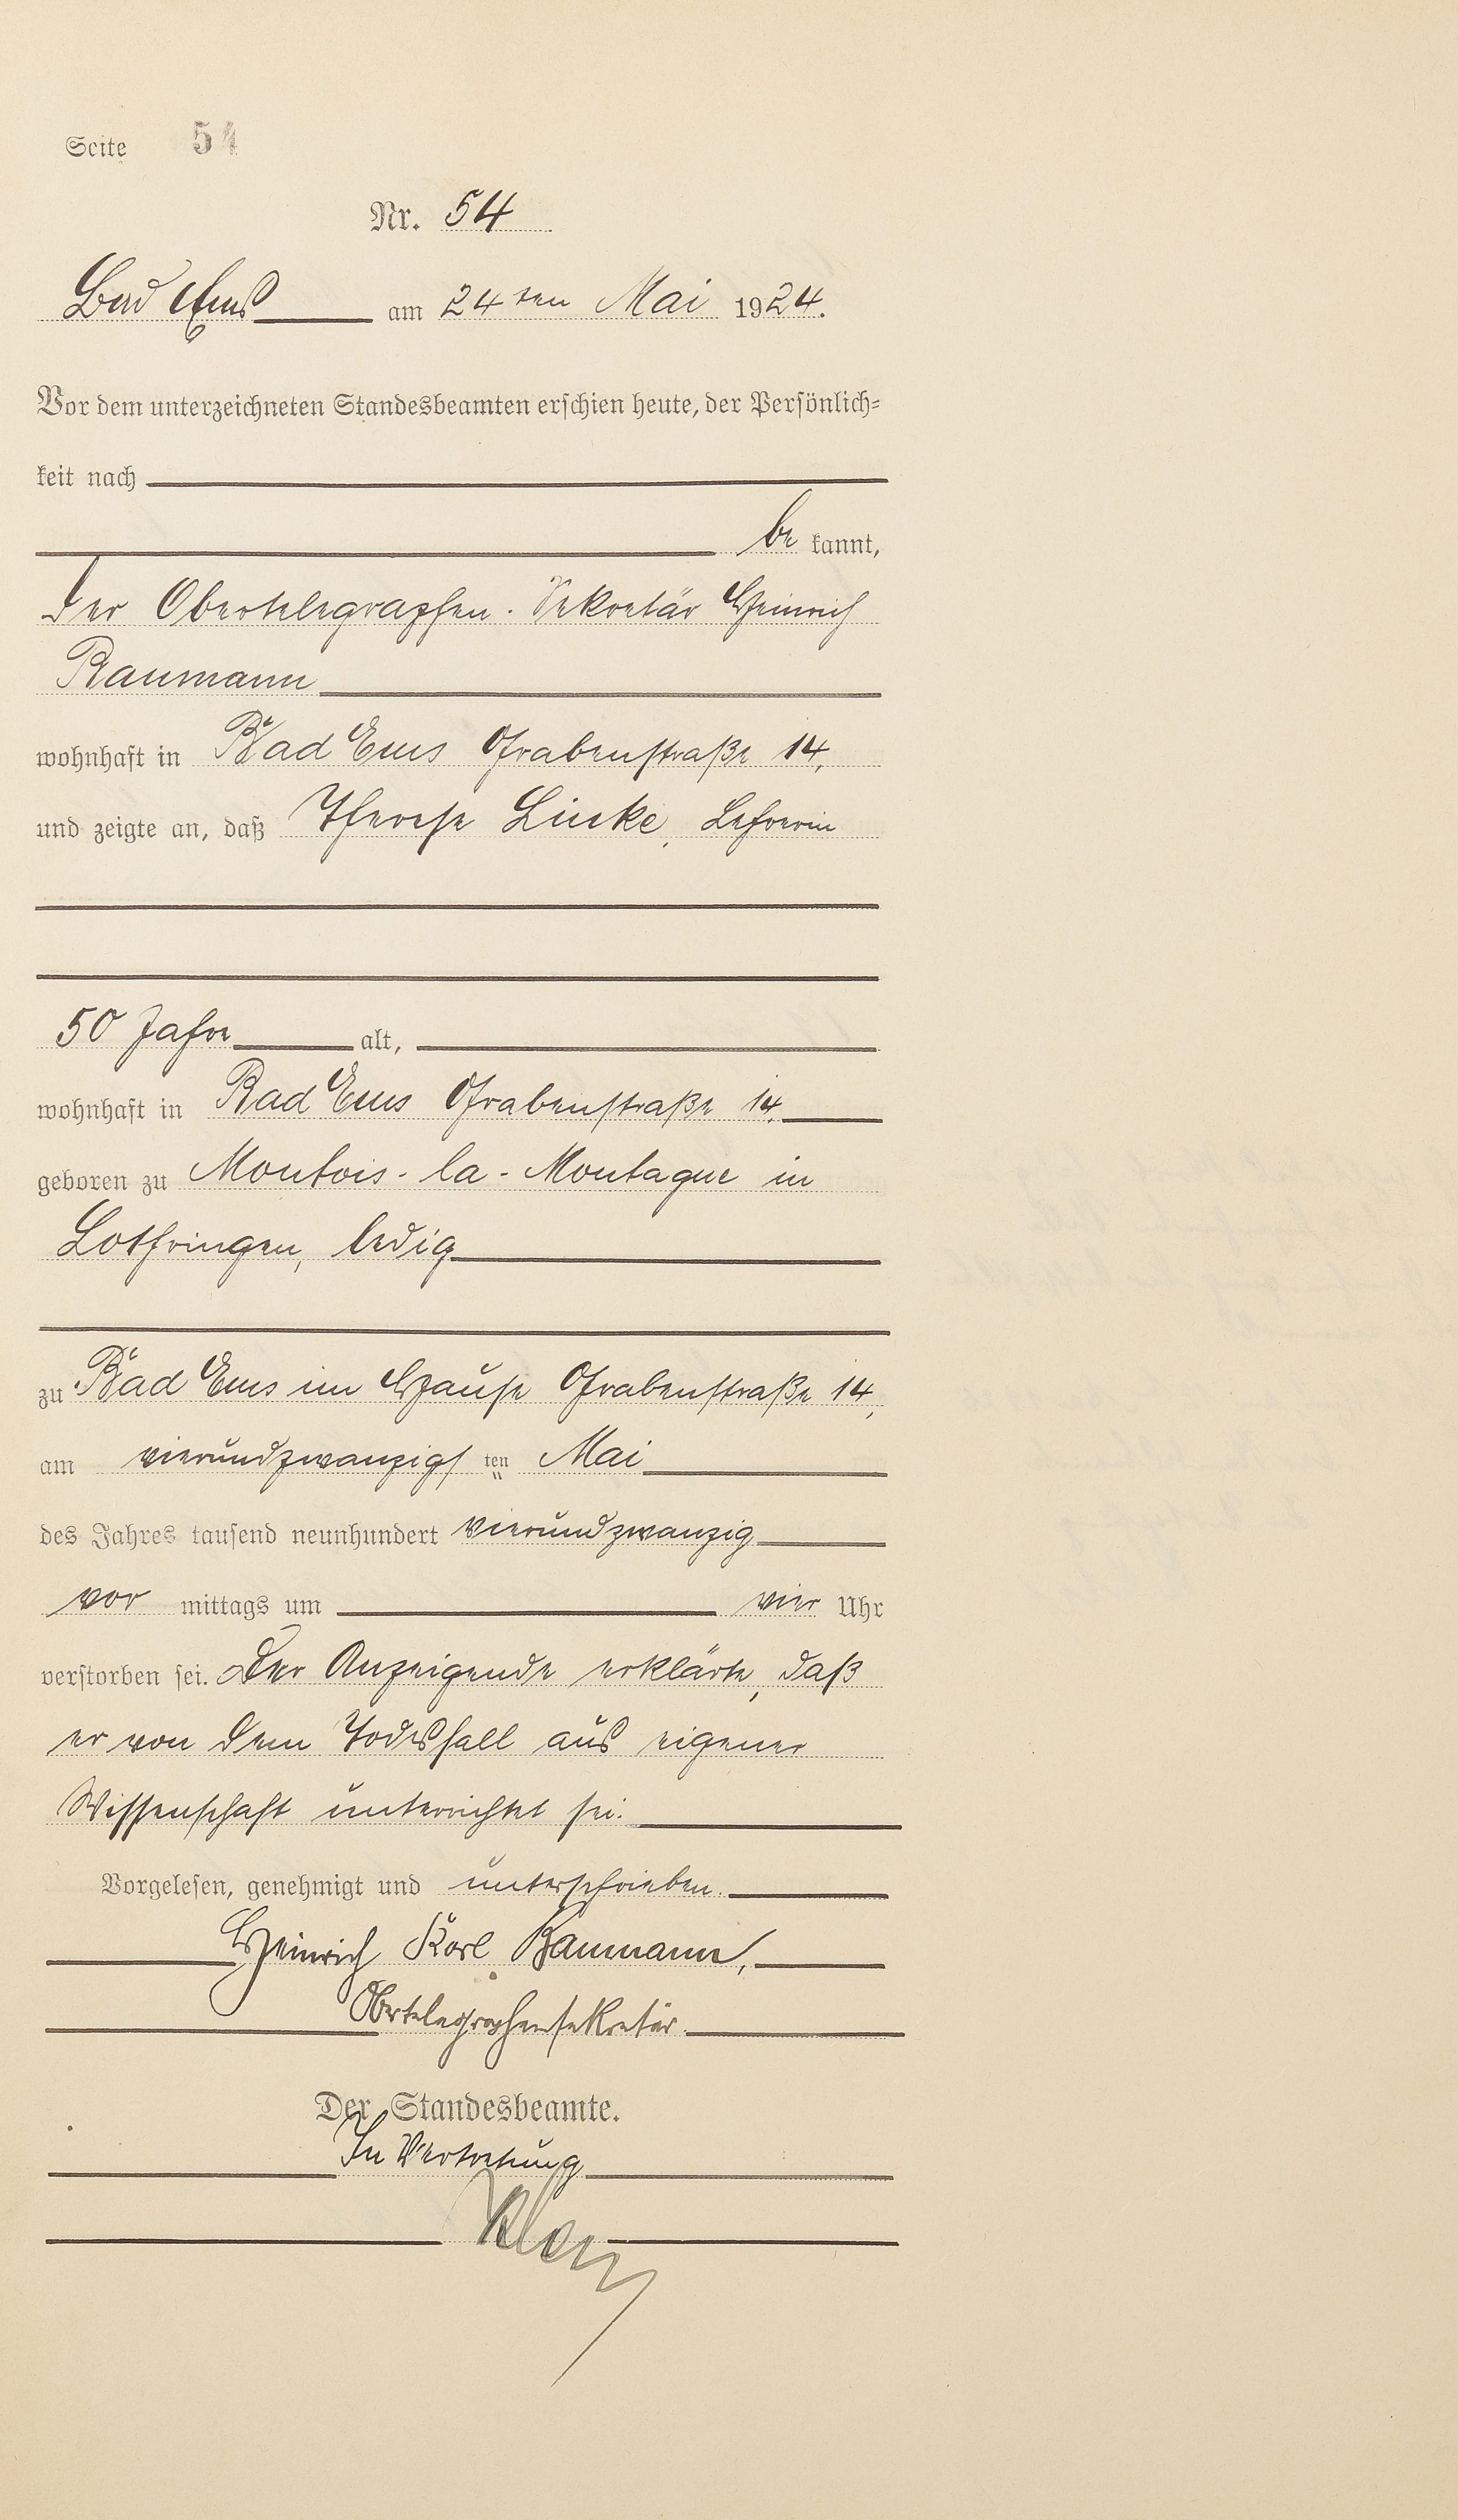 Seite 54
Nr. 54
Bad Ems am 24ten Mai 1924.
Vor dem unterzeichneten Standesbeamten erschien heute, der Persönlich-
keit nach
be kannt,
der Obertelegraphen-Sekretär Heinrich
Baumann
wohnhaft in Bad Ems Grabenstraße 14,
und zeigte an, daß Therese Linke, Lehrerin
50 Jahre alt,
wohnhaft in Bad Ems Grabenstraße 14,
geboren zu Montois-la-Montagne in
Lothringen, ledig
zu Bad Ems im Hause Grabenstraße 14,
am vierundzwanzigsten Mai
des Jahres tausend neunhundert vierundzwanzig
vor mittags um vier Uhr
verstorben sei. Der Anzeigende erklärte, daß
er von dem Todesfall aus eigener
Wissenschaft unterrichtet sei.
Vorgelesen, genehmigt und unterschrieben.
Heinrich Karl Baumann,
Obertelegraphensekretär.
Der Standesbeamte.
In Vertretung